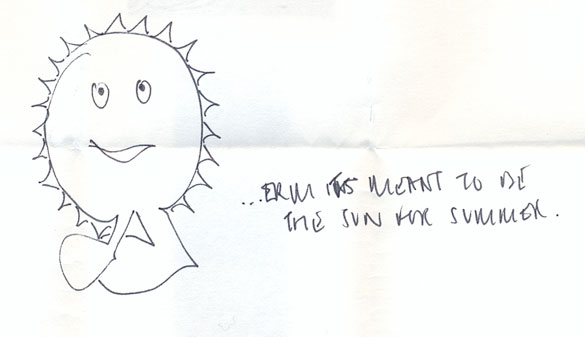 ...ERM ITS MEANT TO BE
THE SUN FOR SUMMER.